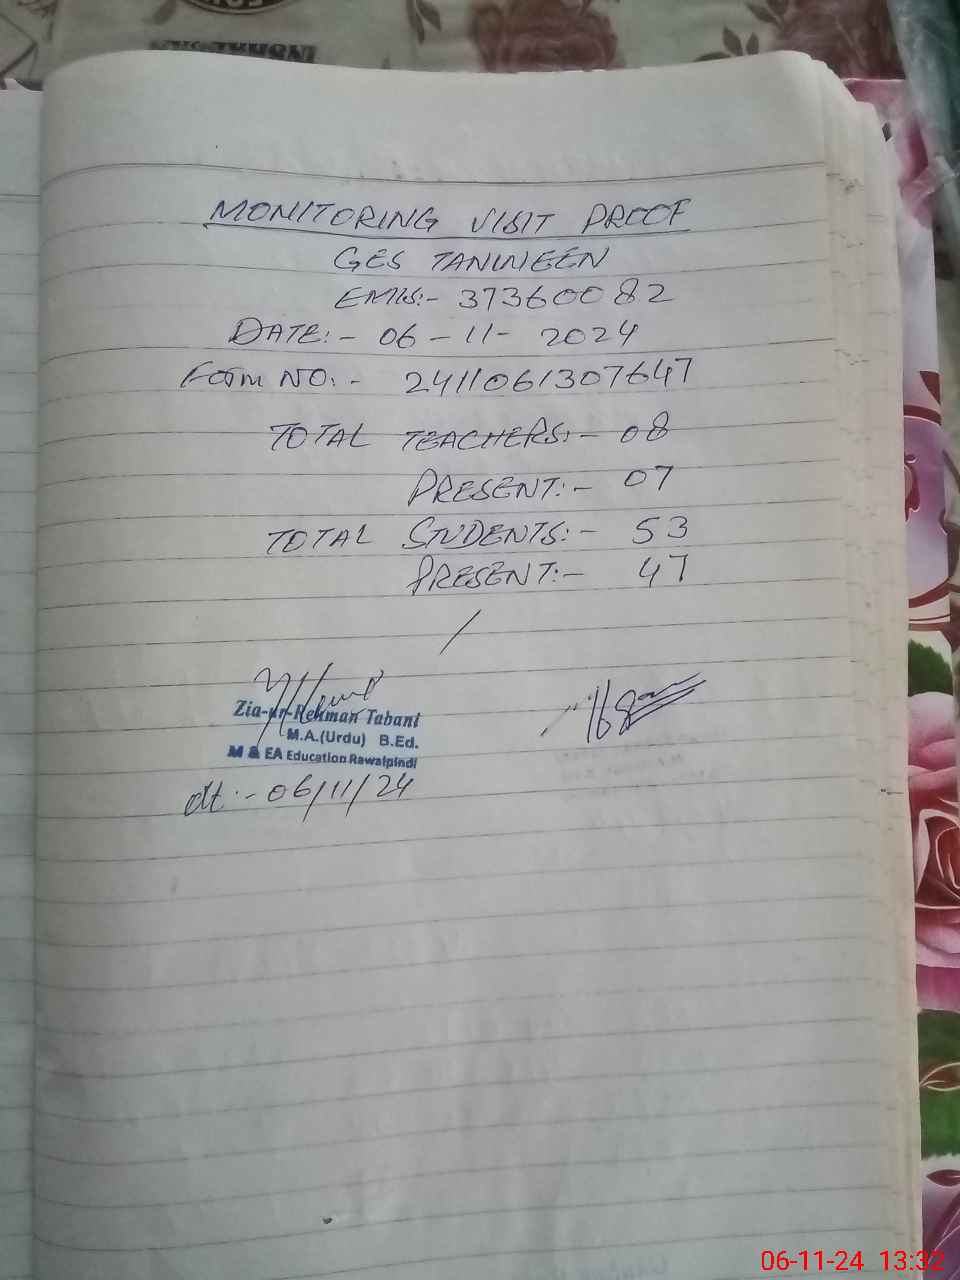 MONITORING VISIT PROOF
GES TANWEEN
EMIS:- 37360082
DATE:- 06-11-2024
Form NO:- 2411061307647
TOTAL TEACHERS:- 08
PRESENT:- 07
TOTAL STUDENTS:- 53
PRESENT:- 47
Zia-ur-Rehman Tabani
M.A.(Urdu) B.Ed.
M & EA Education Rawalpindi
dt:- 06/11/24
06-11-24 13:32